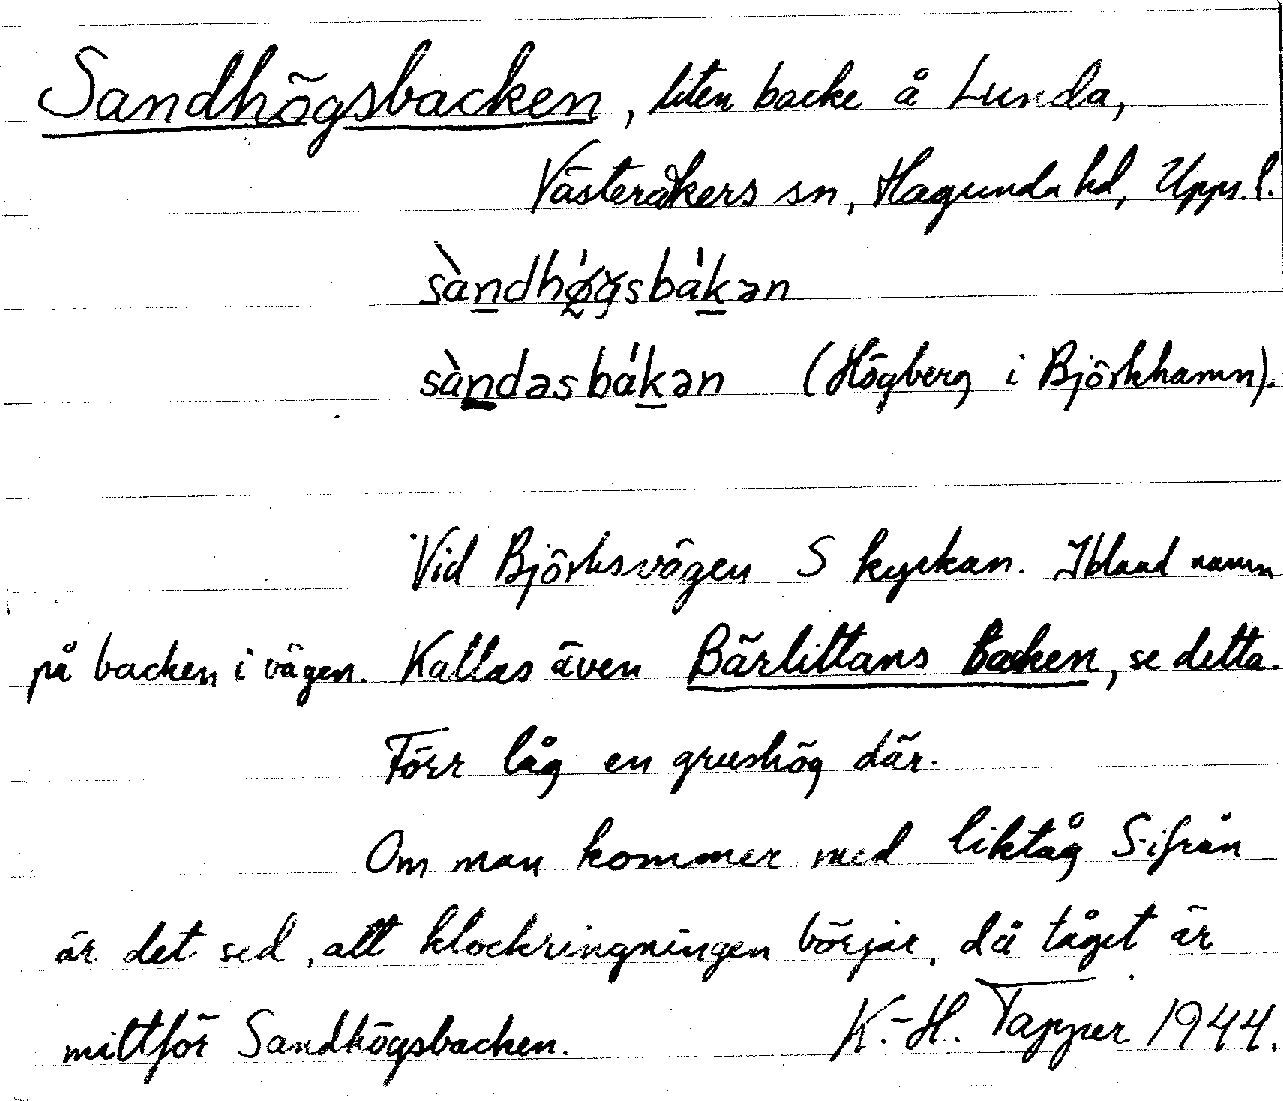 Sandhögsbacken, liten backe å Lunda,
Västeråkers sn, Hagunda hd, Upps. l.
sàndhǿ̨gsbákən
sàndəsbákən (Högberg i Björkhamn).
Vid Björksvägen S kyrkan. Ibland namn
på backen i vägen. Kallas även Bärlittans backen, se detta.
Förr låg en grushög där.
Om man kommer med liktåg S-ifrån
är det sed, att klockringningen börjar, då tåget är
mittför Sandhögsbacken. K.-H. Tapper 1944.